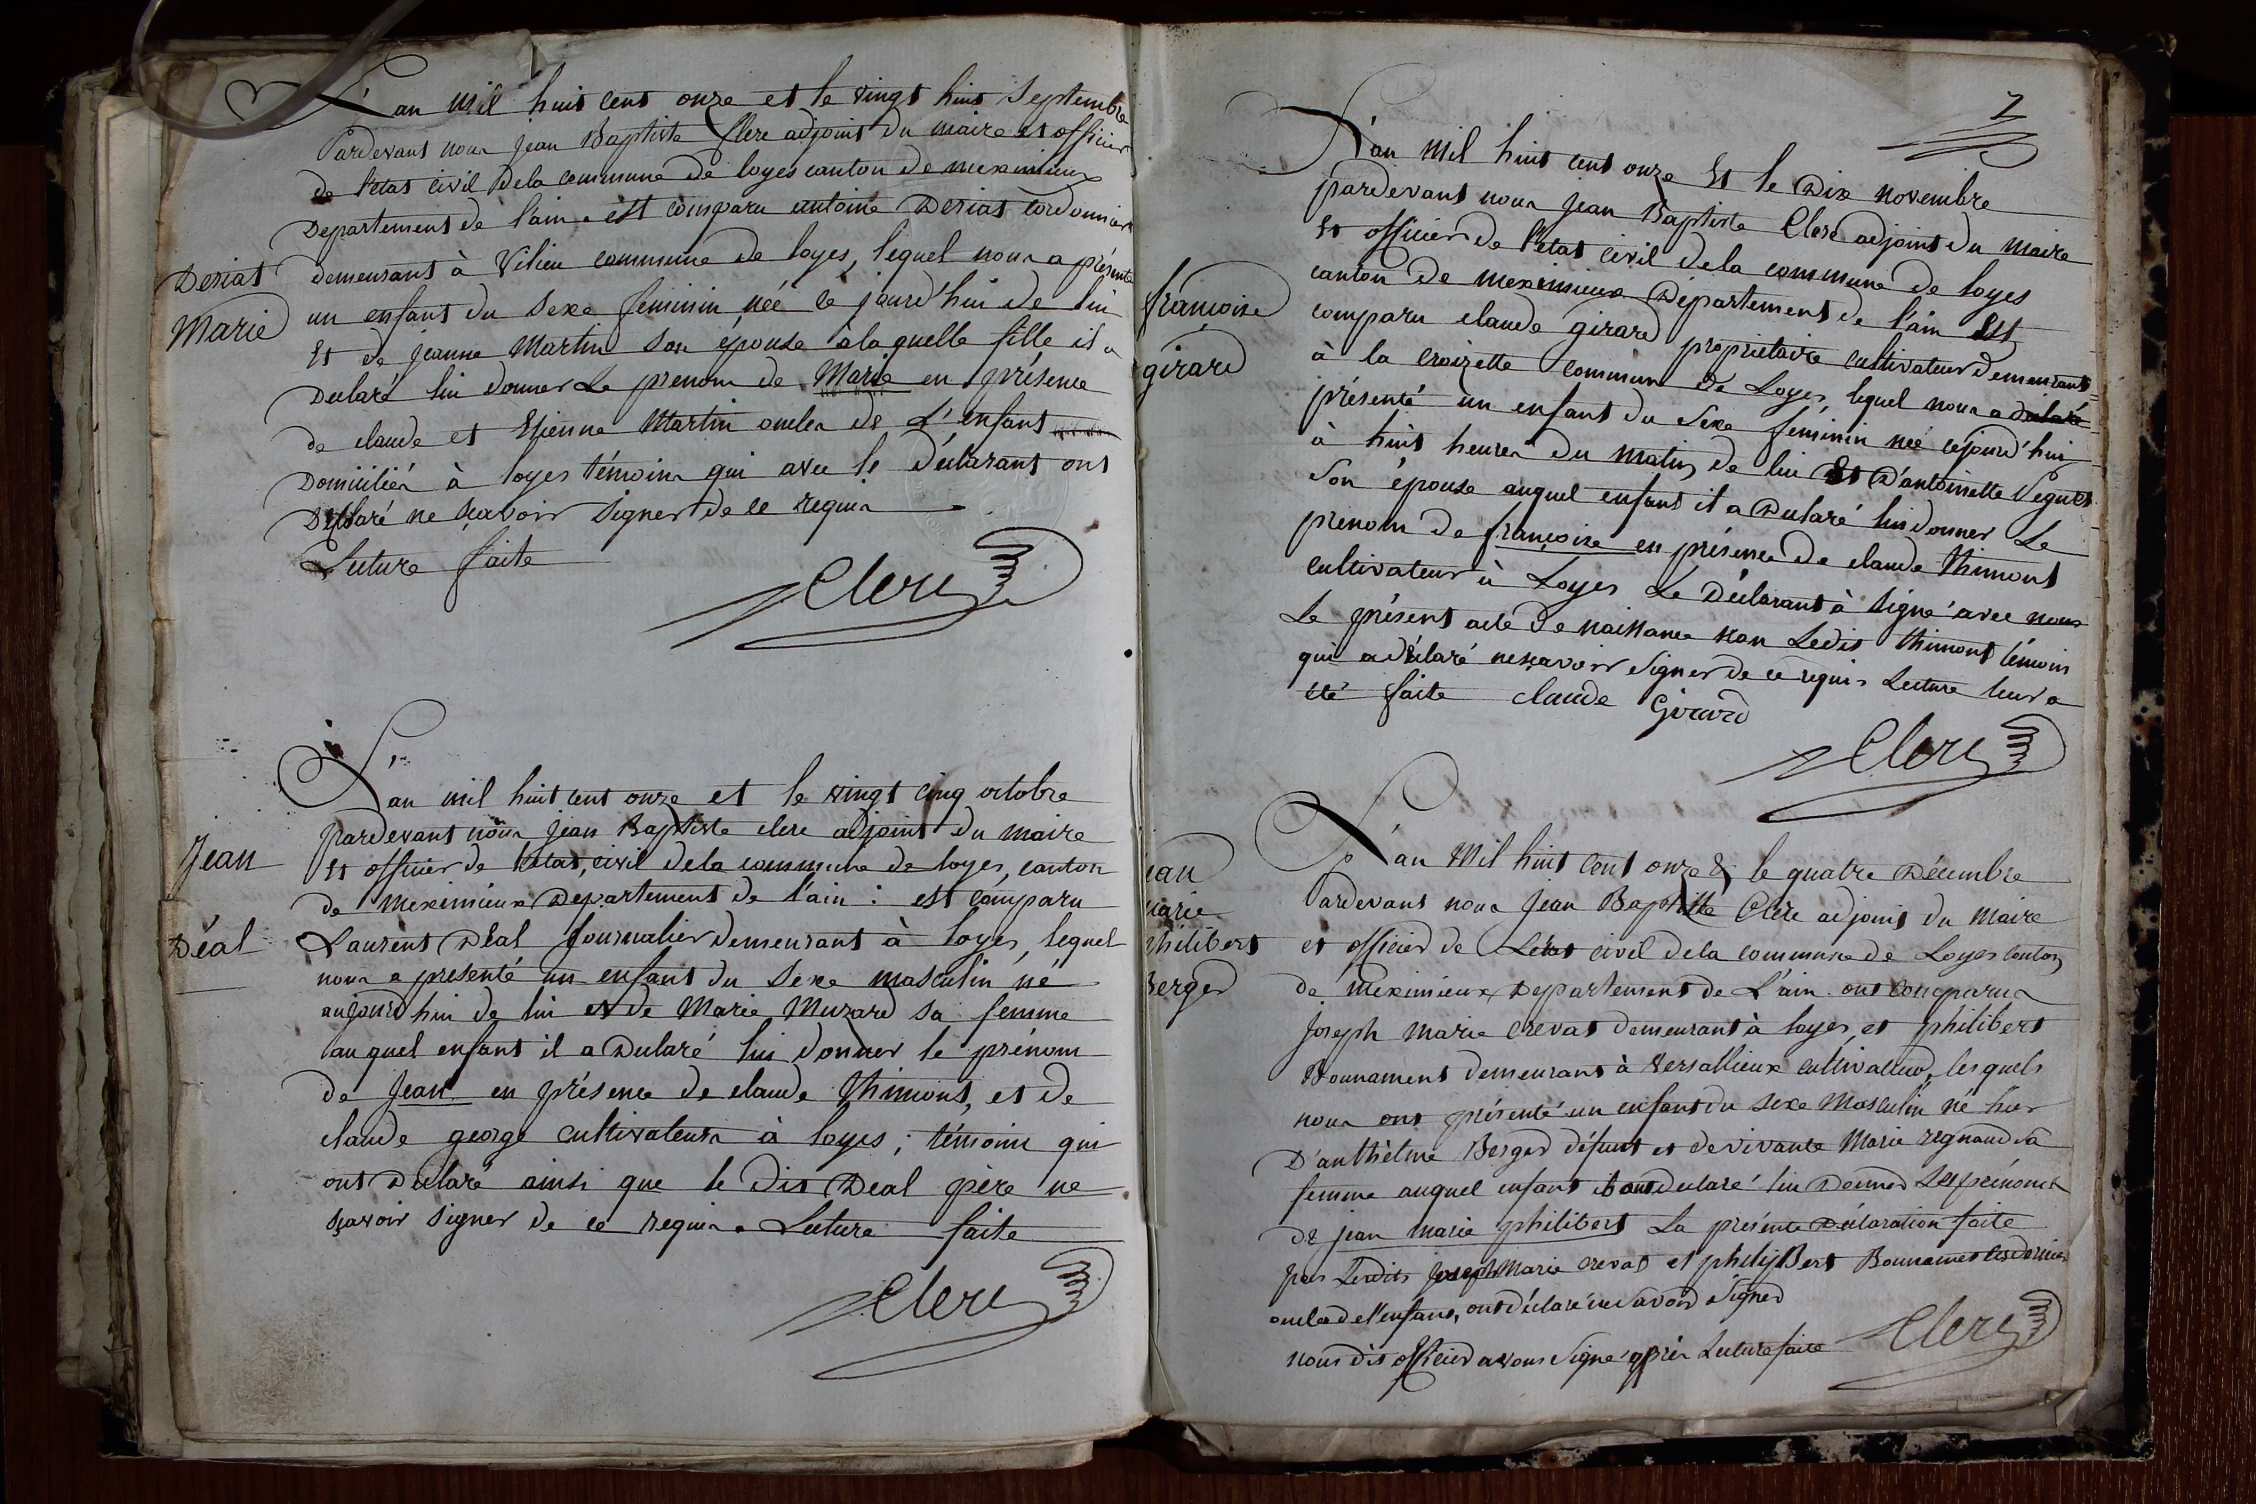 L'an mil huit cent onze et le vingt huit Septembre
Pardevant nous Jean Baptiste Clerc adjoint du maire et officier
de l'etat civil dela commune de loyes canton de meximieux
Departement de l'ain. est comparu antoine Desiat cordonnier
demeurant à Vilieu commune de loyes, lequel nous a présenté
un enfant du Sexe feminin, néé ce jourd'hui de lui
Et de jeanne Martin son épouse àla quelle fille il a
Declaré lui donner Le prenom de Marie en présence
de claude et Etienne Martin oncles de L'enfant
Domiciliés à loyes témoins qui avec le déclarant ont
Déclaré ne sçavoir signer de ce requis
Lecture faite
Clerc
Desiat
Marie
L'an mil huit cent onze et le vingt cinq octobre
pardevant nous Jean Baptiste clerc adjoint du maire
Et officier de l'état civil dela commune de loyes, canton
de meximieux Departement de l'ain : est comparu
Laurent Déal Journalier demeurant à loyes, lequel
nous a presenté un enfant du Sexe masculin né
aujourd'hui de lui et de Marie Muzard sa femme
au quel enfant il a Declaré lui donner le prénom
de Jean en présence de claude thimont, et de
claude george cultivateurs à loyes ; témoins qui
ont Declaré ainsi que le dit Deal père ne
sçavoir signer de ce requis. Lecture faite
Clerc
Jean
Déal
7
L'an Mil huit cent onze Et le Dix novembre
pardevant nous Jean Baptiste Clerc adjoint du maire
Et officier de l'etat civil dela commune de loyes
canton de meximieux Département de l'ain Est
comparu claude girard propriétaire cultivateur Demeurant
à la croizette commune de Loyes, lequel nous a déclaré
présenté un enfant du Sexe feminin néé cejourd'hui
à huit heures du matin, de lui Et D'antoinette Seguet
Son épouse auquel enfant il a Déclaré lui donner Le
prénom de françoise en présence de claude thimont
cultivateur à Loyes Le Déclarant à signé avec nous
Le présent acte de naissance non Ledit thimont témoin
qui a déclaré nesçavoir signer de ce requis Lecture leur a
été faite claude Girard
Clerc
françoise
girard
L'an Mil huit cent onze & le quatre Décembre
Pardevant nous Jean Baptiste Clerc adjoint du Maire
et officier de L'état civil dela commune de Loyes canton
de meximieux Departement de L'ain. ont comparus
Joseph marie Crevat demeurant à loyes, et philibert
Bonnament demeurant à versallieux cultivateur, lesquels
nous ont présenté un enfant du Sexe Masculin né hier
D'anthelme Berger défunt et devivante Marie regnaud sa
femme auquel enfant ils ont declaré lui Donner Les prénoms
de jean marie philibert La présente Déclaration faite
par Lesdits joseph Marie crevat et philiBert Bonnament
oncles de l'enfant, ont déclaré ne savoir Signer
nous dit officier avons signé après Lecture faite
Clerc
ean
marie
philibert
Berger